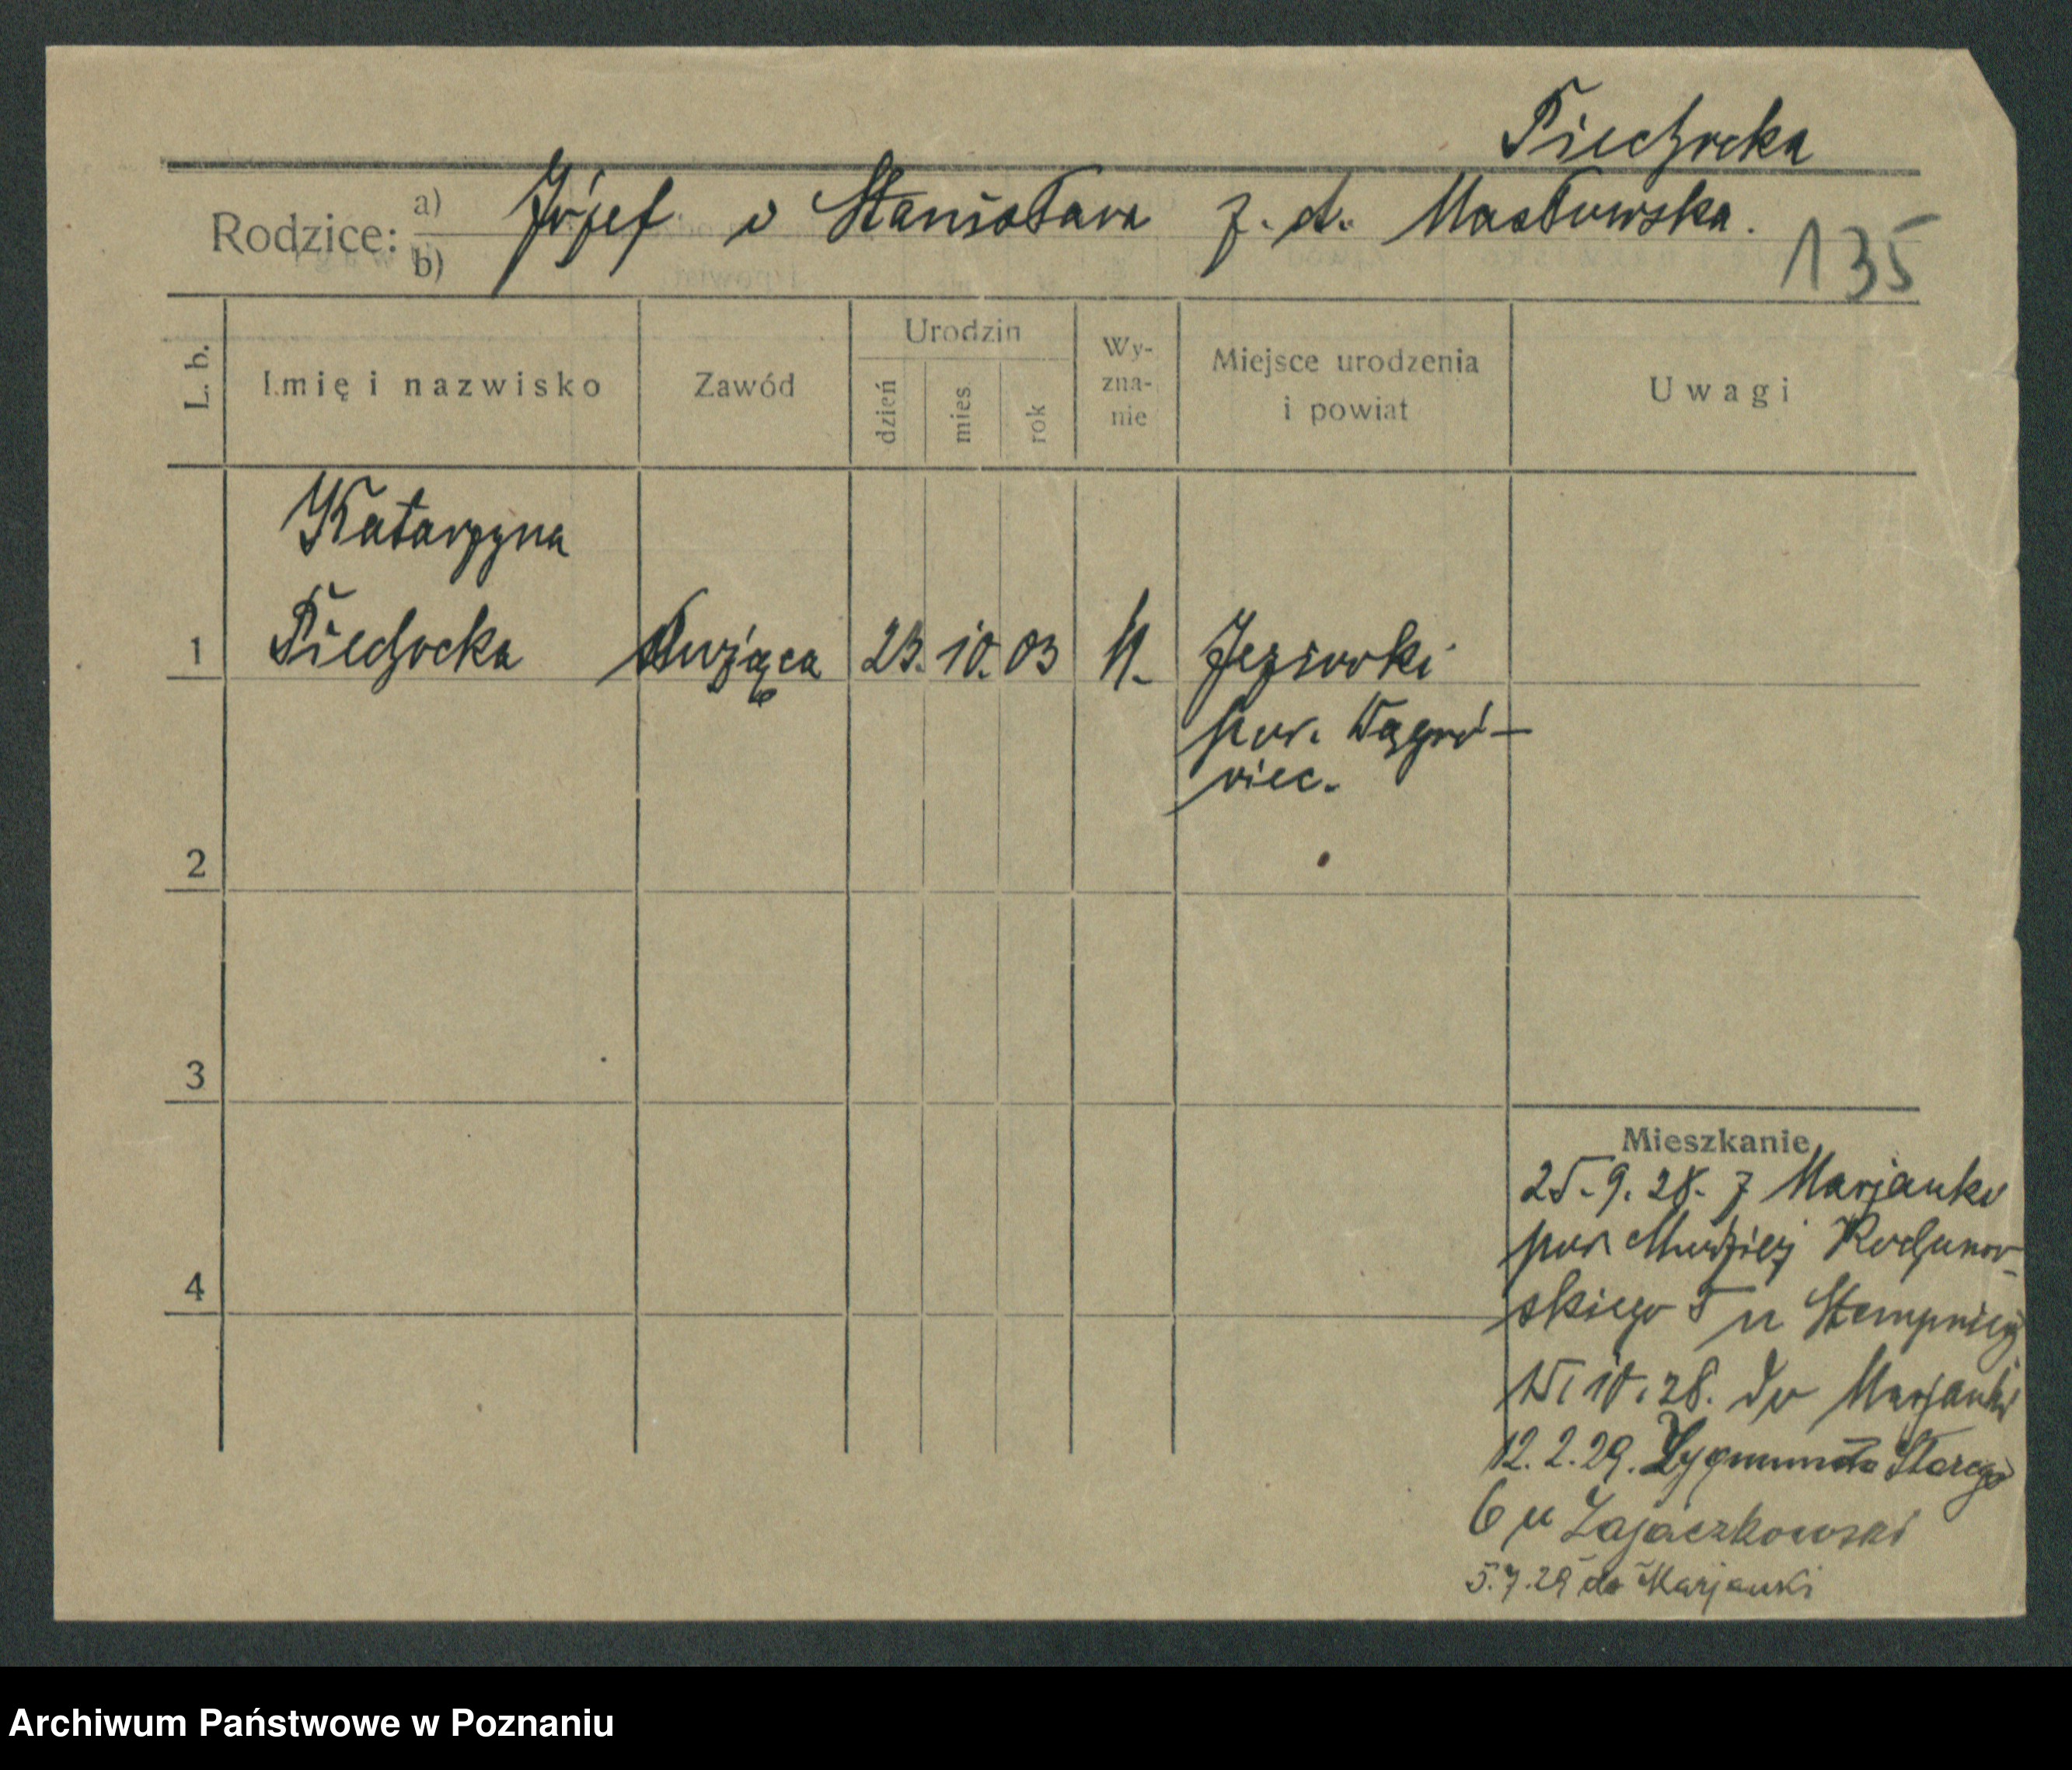 Piechocka
Rodzice: a) b) Józef i Stanisława z. d. Masłowska.
135
L. b.
Imię i nazwisko
Zawód
Urodzin
dzień
mies
rok
Wy-
zna-
nie
Miejsce urodzenia
i powiat
Uwagi
Katarzyna
1 Piechocka służąca 23. 10. 03 k. Jeziorki
pow. Wągró-
wiec.
2
3
4
Mieszkanie
25. 9. 28. z Marjanki
pow. Chodzież
skiego 5 u
15. 10. 28. do Marjanki
12. 2. 29. Zygmunta Starego
6 u Zajączkowski
5. 7. 29 do Marjanki
Archiwum Państwowe w Poznaniu